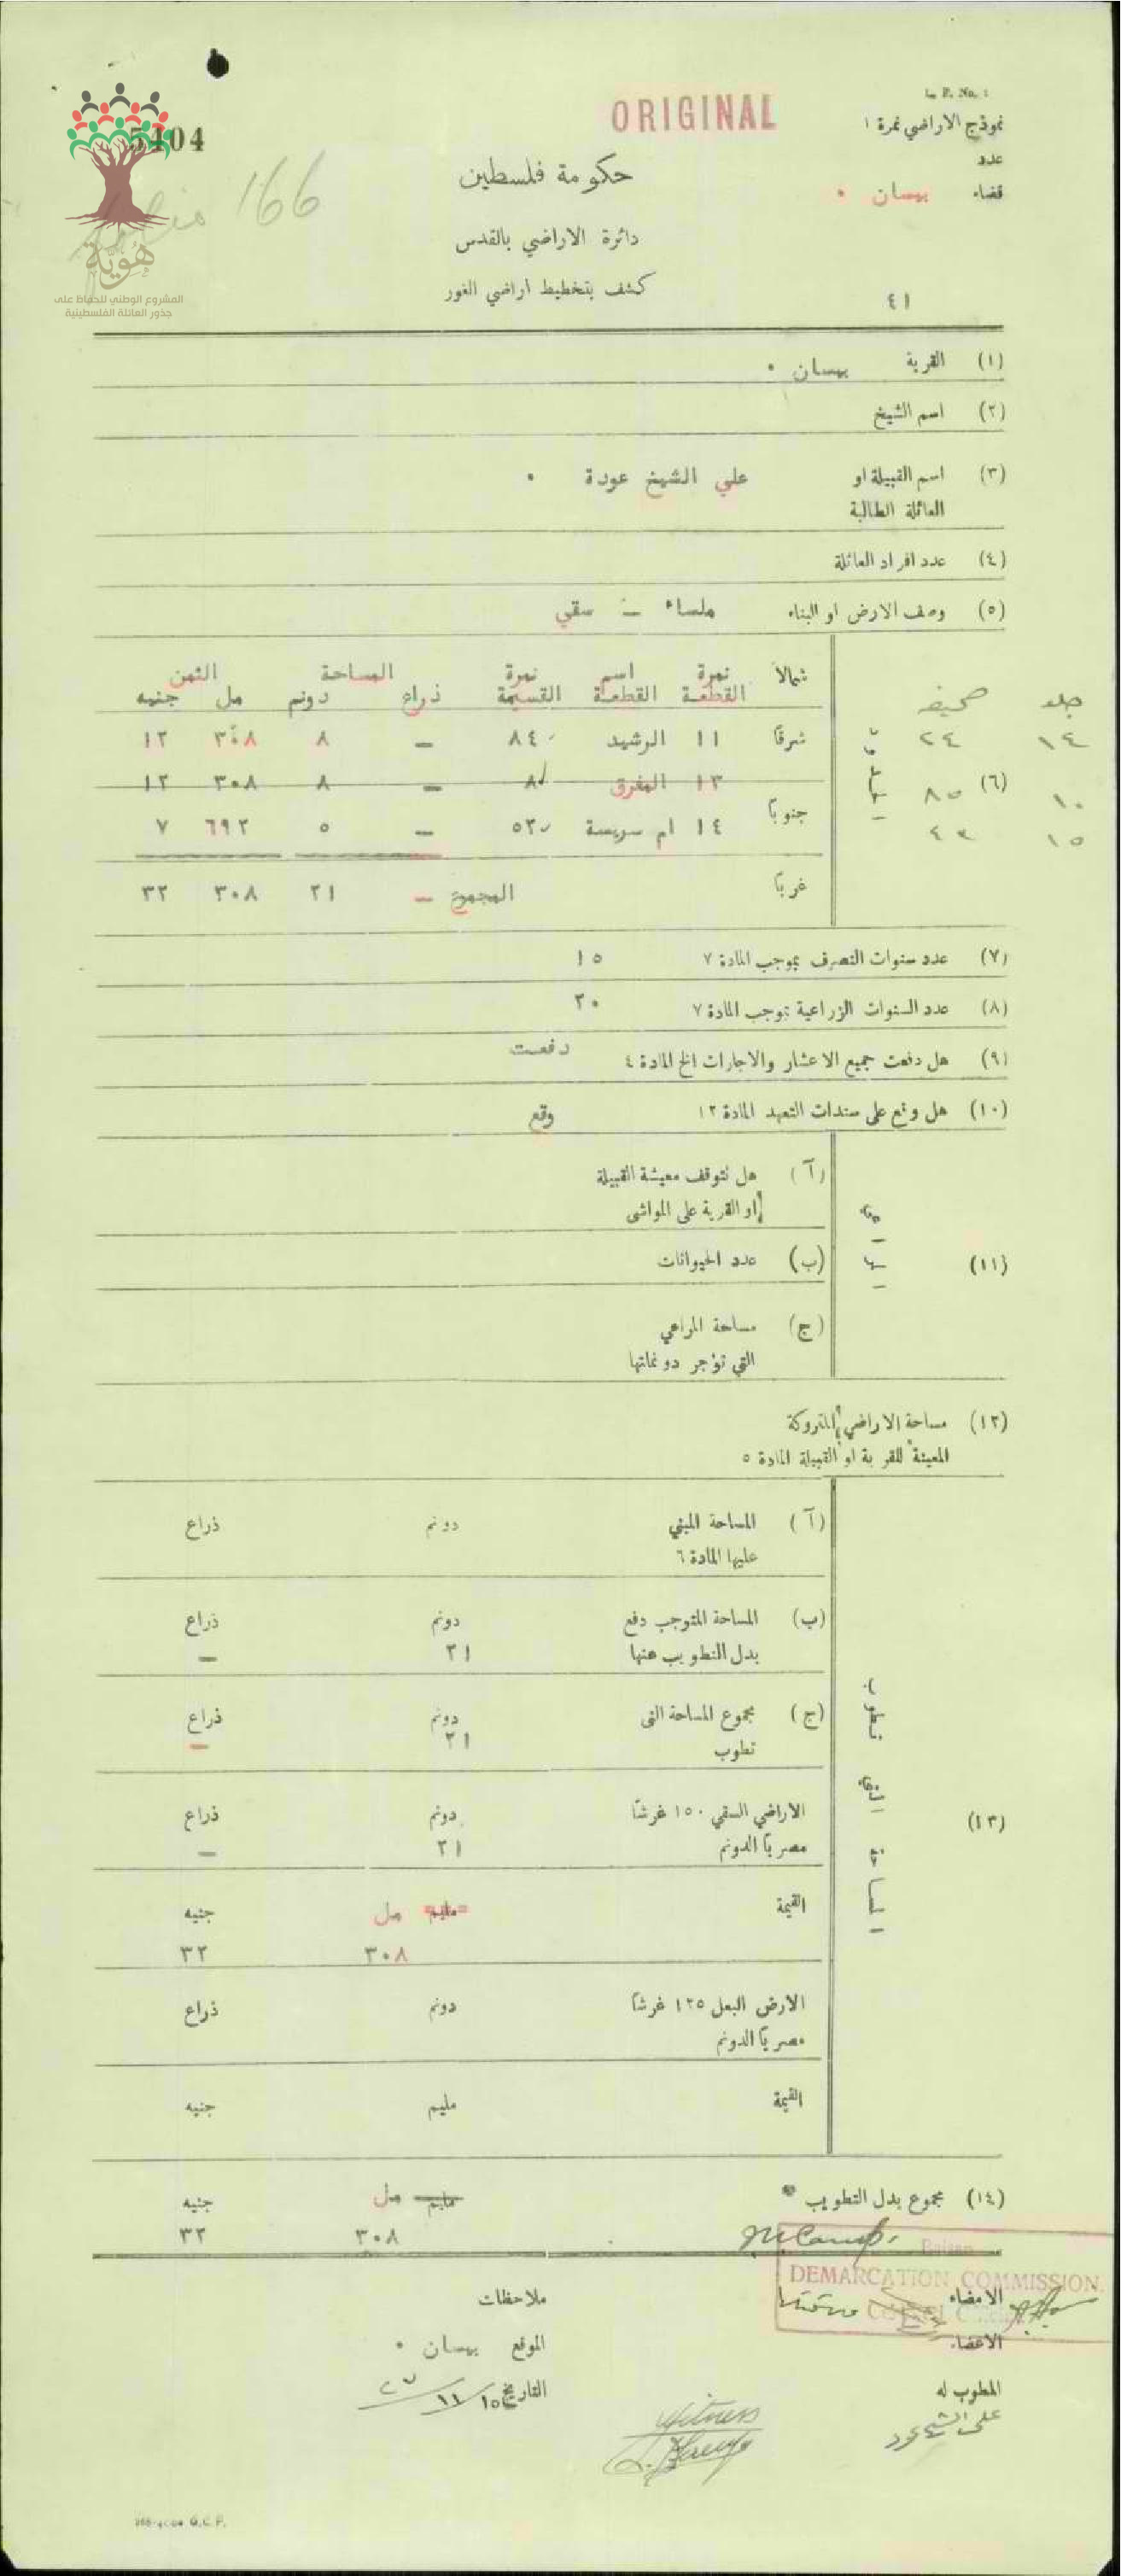 L. P. No. :
ORIGINAL
نموذج الاراضي نمرة ١
5404
عدد
حكومة فلسطين
قضاء بيسان ٠
166
دائرة الاراضي بالقدس
هُويّة
كشف بتخطيط اراضي الغور
المشروع الوطني للحفاظ على
جذور العائلة الفلسطينية
٤١
(١) القرية بيسان ٠
(٢) اسم الشيخ
(٣) اسم القبيلة او علي الشيخ عودة ٠
العائلة الطالبة
(٤) عدد افراد العائلة
(٥) وصف الارض او البناء ملساء - سقي
شمالاً نمرة اسم نمرة المساحة الثمن
جلد صحيفه القطعة القطعة القسيمة ذراع دونم مل جنيه
١٤ ٢٤ شرقاً ١١ الرشيد ٨٤ — ٨ ٣٠٨ ١٢
(٦) ١٠ ٨٥ ١٣ المفرق ٨ — ٨ ٣٠٨ ١٢
١٥ ٤٣ جنوباً ١٤ ام سريسة ٥٣ — ٥ ٦٩٢ ٧
غرباً المجموع — ٢١ ٣٠٨ ٣٢
(٧) عدد سنوات التصرف بموجب المادة ٧ ١٥
(٨) عدد السنوات الزراعية بموجب المادة ٧ ٢٠
(٩) هل دفعت جميع الاعشار والاجارات الخ المادة ٤ دفعت
(١٠) هل وقع على سندات التعهد المادة ١٢ وقع
(١١)
(آ) هل تتوقف معيشة القبيلة
او القرية على المواشى
(ب) عدد الحيوانات
(ج) مساحة المراعي
التي تؤجر دونماتها
(١٢) مساحة الاراضي المتروكة
المعينة للقرية او القبيلة المادة ٥
(١٣) المساحة التي تطوب
(آ) المساحة المبني دونم ذراع
عليها المادة ٦
(ب) المساحة المتوجب دفع دونم ذراع
بدل التطويب عنها ٢١ —
(ج) مجموع المساحة التى دونم ذراع
تطوب ٢١ —
الاراضي السقي ١٥٠ غرشاً دونم ذراع
مصرياً الدونم ٢١ —
القيمة مليم مل جنيه
٣٠٨ ٣٢
الارض البعل ١٢٥ غرشاً دونم ذراع
مصرياً الدونم
القيمة مليم جنيه
(١٤) مجموع بدل التطويب مليم مل جنيه
٣٠٨ ٣٢
Baisan
DEMARCATION COMMISSION.
الامضاء ملاحظات
الاعضاء الموقع بيسان ٠
المطوب له التاريخ ١٥/١١/٢٧
على الشيخ عوده
Witness
G.C.P.